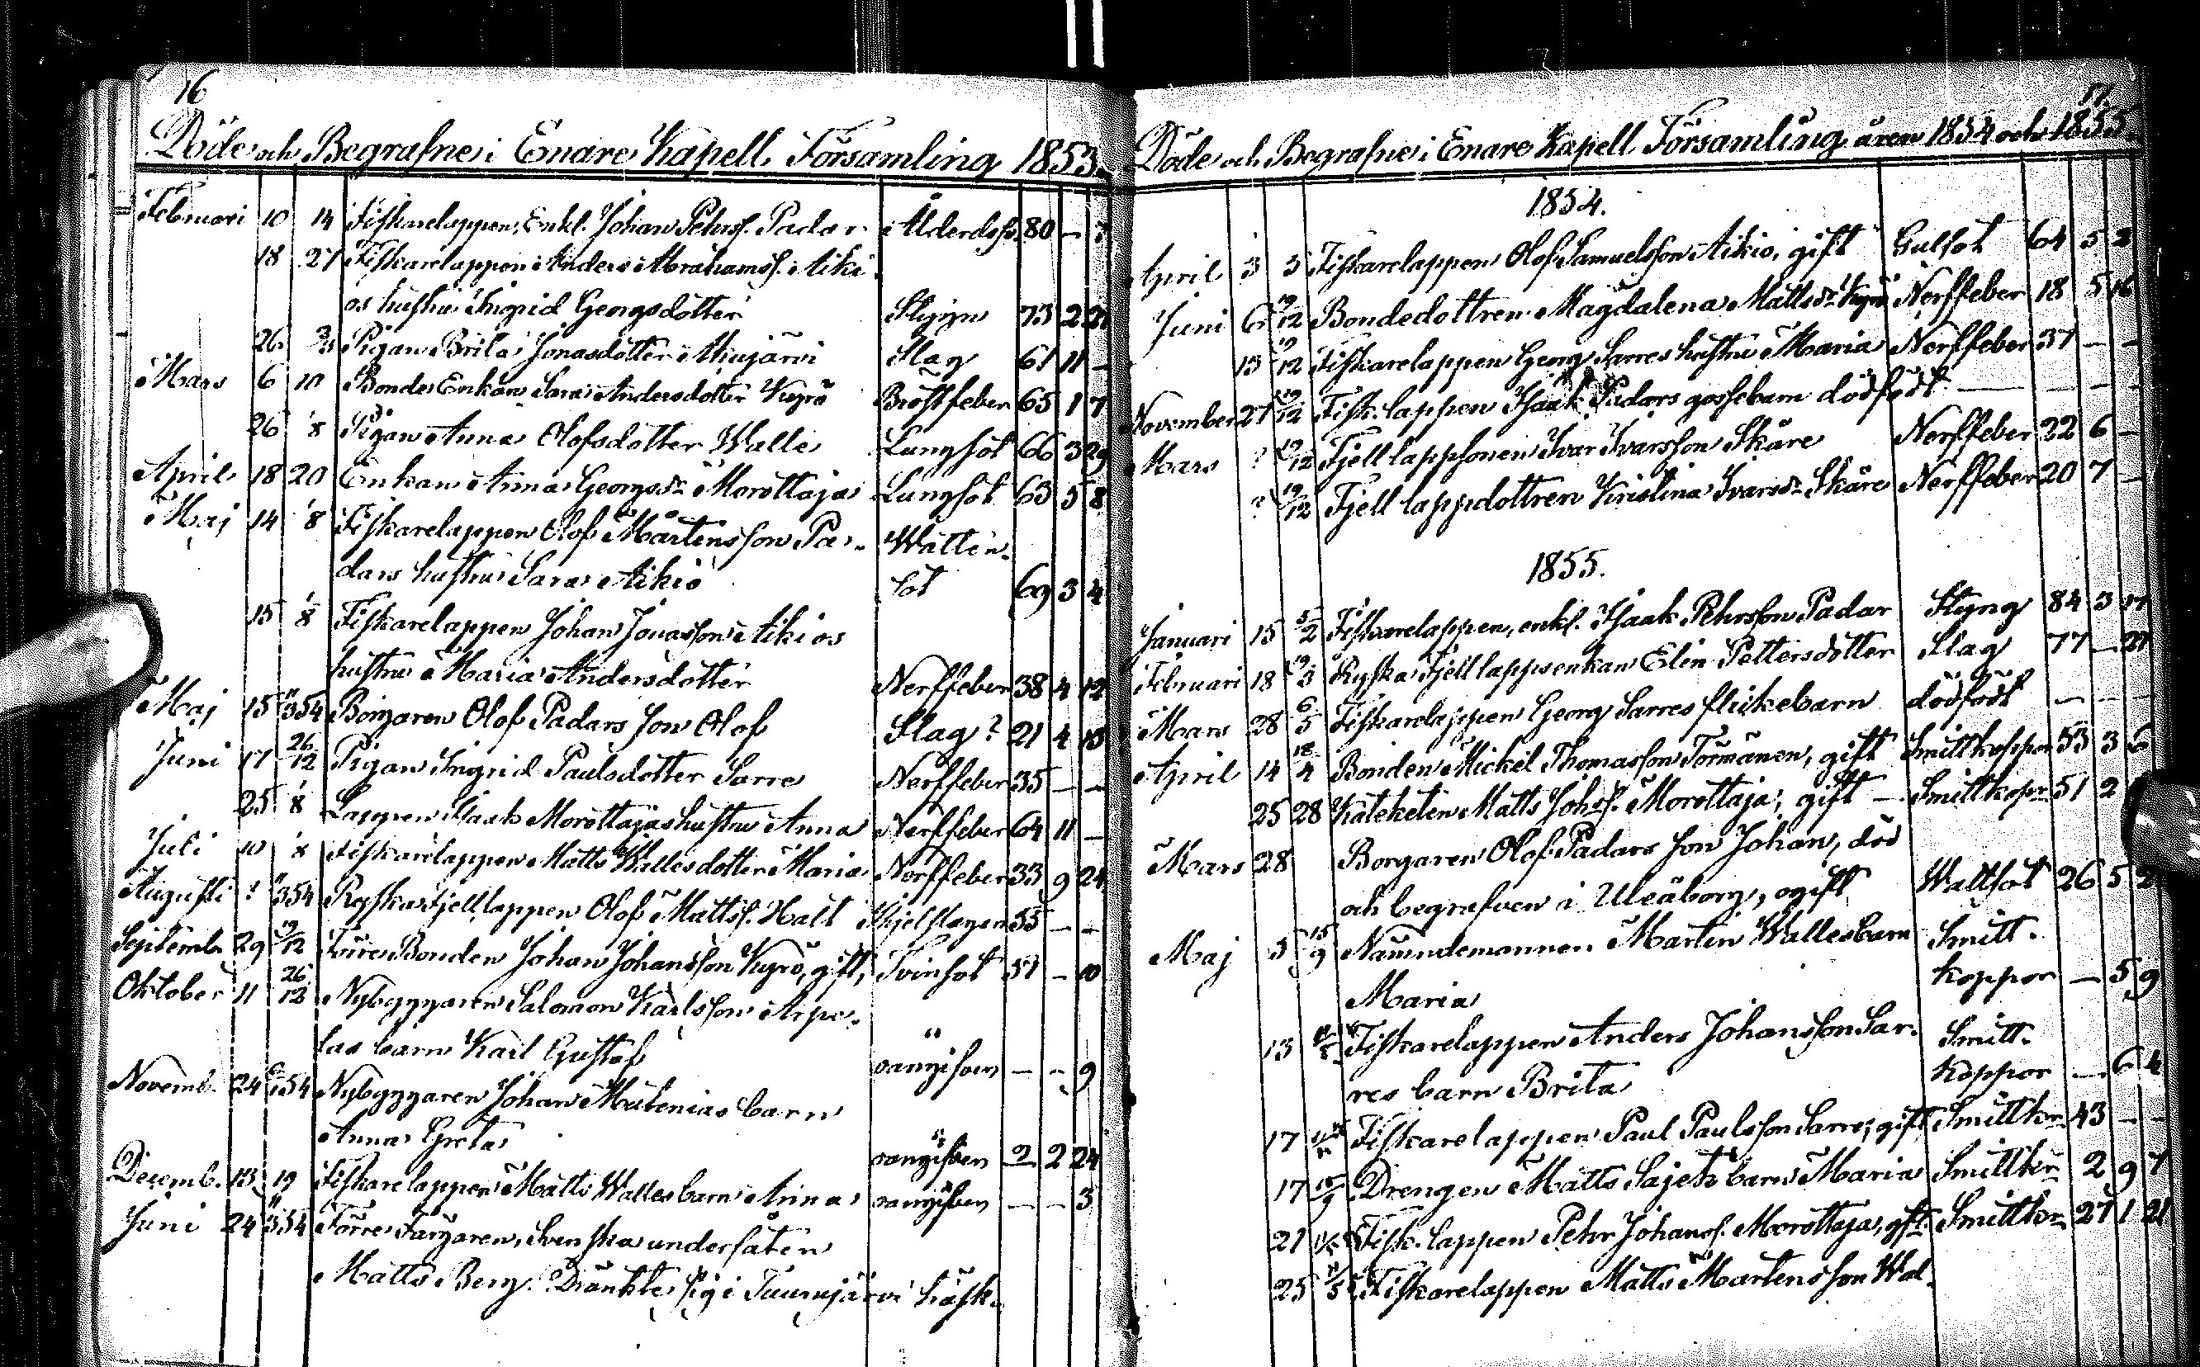 16
Döde och Begrafne i Enare Kapell Församling 1853.
Februari 10 14 Fiskarelappen, Enkl. Johan Pehrsf. Padar Ålderdoms 80 –
18 27 Fiskarelappen Anders Abrahamsf. Aiki
os hustru Ingrid Georgsdotter Styng 73 2 21
26 Pigan Brita Jonasdotter Mujärvi Slag 61 11 –
Mars 6 10 Bonde Enkan Sara Andersdotter Kyrö Bröstfeber 65 1 7
26 8 Pigan Anna Olofsdotter Walle Lungsot 66 3 29
April 18 20 Enkan Anna Georgsdr Morottaja Lungsot 63 5 8
Maj 14 8 Fiskarelappen Olof Mårtensson Pa- Watten-
dars hustru Sara Aikio sot 69 3 4
15 8 Fiskarelappen Johan Jonasson Aikios
hustru Maria Andersdotter Nerffeber 38 4 12
Maj 15 Borgaren Olof Padars son Olof Slag? 21 4 13
Juni 17 26/12 Pigan Ingrid Paulsdotter Sarre Nerffeber 35 – –
25 8 Lappen Isaak Morottajas hustru Anna Nerffeber 64 11 –
Juli 10 8 Fiskarelappen Matts Walles dotter Maria Nerffeber 33 9 24
Augusti ? Ryska Fjellappen Olof Mattsf. Halt Ihjelslagen 55 – –
Septemb. 29 19/12 Förre Bonden Johan Johansson Kyrö, gift, Tvinsot 51 – 10
Oktober 11 26/12 Nybyggaren Salomon Karlsson Arpe-
las barn Karl Gustaf oangifven – – 9
Novemb. 24 Nybyggaren Johan Mutenias barn
Anna Greta oangifven 2 2 24
Decemb. 13 19 Fiskarelappen Matts Walles barn Anna oangifven – – 3
Juni 24 Förre Färgaren, Svenska undersåten
Matts Berg. Dränkte sig i
17.
Döde och Begrafne i Enare Kapell Församling åren 1854 och 1855.
1854.
April 3 5 Fiskarelappen Olof Samuelsson Aikio, gift Gulsot 64 5 2
Juni 6 19/12 Bondedottren Magdalena Mattsdr Kyrö Nerffeber 18 5 16
13 19/12 Fiskarelappen Georg Sarres hustru Maria Nerffeber 37 – –
November 27 19/12 Fisk. lappen Isaak Padars gossebarn dödfödt – – –
Mars ? 19/12 Fjell lappsonen Ivar Ivarsson Skåre Nerffeber 22 6 –
? 19/12 Fjell lappdottren Kristina Ivarsdr Skåre Nerffeber 20 7 –
1855.
Januari 15 5/2 Fiskarelappen, enkl. Isaak Pehrsson Padar Styng 84 3 17
Februari 18 Ryska Fjell lappsenkan Elin Pettersdotter Slag 77 – 27
Mars 28 6/5 Fiskarelappen Georg Sarres flickebarn dödfödt – – –
April 14 18/4 Bonden Mickel Thomasson Törmänen, gift Smittkoppor 53 3 6
25 28 Kateketen Matts Johsf. Morottaja, gift – Smittkopr 51 2
Mars 28 Borgaren Olof Padars son Johan, död
och begrafven i Uleåborg, ogift Wattsot 26 5 2
Maj 5 15/9 Nämndemannen Martin Walles barn Smitt-
Maria koppor – 5 9
13 Fiskarelappen Anders Johansson Sar- Smitt-
res barn Brita koppor – 6 4
17 Fiskarelappen Paul Paulsson Sarre, gift Smittkr 43 – –
17 Drengen Matts Sajets barn Maria Smittkr 2 9 7
21 Fisk. lappen Pehr Johansf. Morottaja, gft. Smittkr 27 1 21
25 Fiskarelappen Matts Martensson Wal-